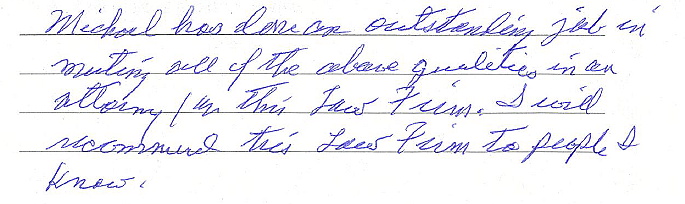 Michael has done an outstanding job in
meeting all of the above qualities in an
attorney / in this Law Firm. I will
recommend this Law Firm to people I
know.